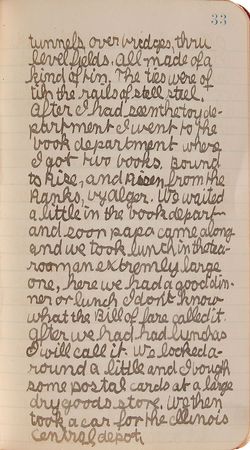 33
tunnels, over bridges, thru
level fields. All made of a
kind of tin. The ties were of
tin the rails of steel steel.
After I had seen the toy de-
partment I went to the
book department where
I got two books. Bound
to Rise, and Risen from the
Ranks, by Alger. We waited
a little in the book depart-
and soon papa came along
and we took lunch in the tea-
room an extremly large
one, here we had a good din-
ner or lunch I don't know
what the Bill of fare called it.
After we had had lunch as
I will call it. We looked a-
round a little and I bough
some postal cards at a large
dry goods store. We then
took a car for the Illinois
Central depot,